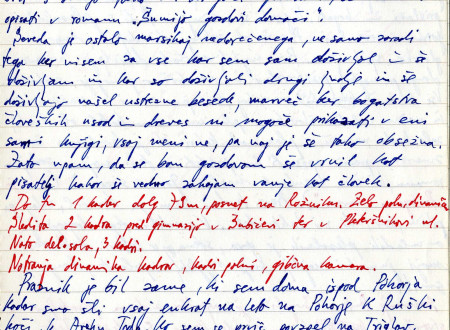 opisati v romanu "Šumijo gozdovi domači".
Seveda je ostalo marsikaj nedorečenega, ne samo zaradi
tega ker nisem za vse kar sem sam doživljal in še
doživljam in kar so doživljali drugi ljudje in še
doživljajo našel ustrezne besede, marveč ker bogatstva
človeških usod in dreves ni mogoče prikazati v eni
sami knjigi, vsaj meni ne, pa naj je še tako obsežna.
Zato upam, da se bom gozdovom še vrnil kot
pisatelj kakor še vedno zahajam vanje kot človek.
Do tu 1 kader dolg 75m, posnet na Rožniku. Zelo poln, dinamičen
Sledita 2 kadra pred gimnazijo v Šubičevi ter v ul.
Nato del. soba, 3 kadri.
Notranja dinamika kadrov, kadri polni, gibčna kamera.
Praznik je bil zame, ki sem doma izpod Pohorja
kadar smo šli vsaj enkrat na leto na Pohorje k Ruški
koči, k Arehu. Ko sem se prvič povzpel na Triglav,